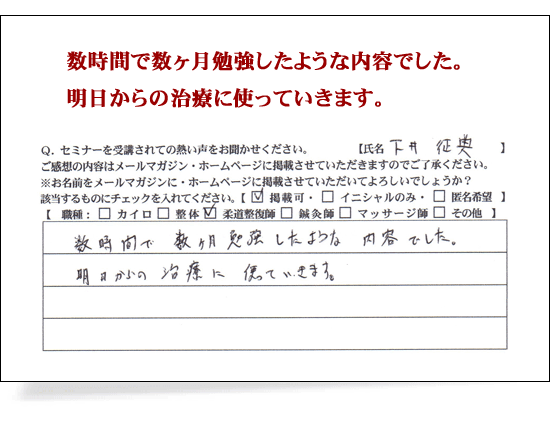 数時間で数ヶ月勉強したような内容でした。
明日からの治療に使っていきます。
Q. セミナーを受講されての熱い声をお聞かせください。 【氏名 下井 征典 】
ご感想の内容はメールマガジン・ホームページに掲載させていただきますのでご了承ください。
※お名前をメールマガジンに・ホームページに掲載させていただいてよろしいでしょうか？
該当するものにチェックを入れてください。【 ☑ 掲載可・ □ イニシャルのみ・ □ 匿名希望 】
【 職種： □ カイロ □ 整体 ☑ 柔道整復師 □ 鍼灸師 □ マッサージ師 □ その他 】
数時間で 数ヶ月勉強したような 内容でした。
明日からの 治療に 使っていきます。